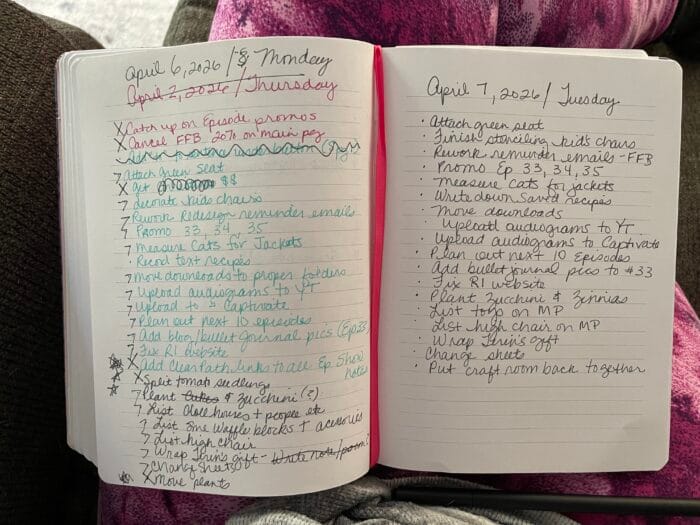 April 6, 2026 / & Monday
April 2, 2026 / Thursday
X Catch up on Episode promos
X Cancel FFB 20% on main pg
7 Attach Green Seat
X Get $$
7 decorate kids chairs
7 Rework Redesign reminder emails
7 Promo 33, 34, 35
7 Measure Cats for Jackets
· Record text recipes
7 move downloads to proper folders
7 Upload audiograms to YT
7 Upload to Captivate
7 Plan out next 10 episodes
7 Add blog/bullet journal pics (Ep 33)
7 Fix RI website
X Add Clear Path links to all Ep. Show notes
X Split tomato seedlings
7 Plant & zucchini (2)
7 List dollhouses + people etc
7 List waffle blocks +
7 List high chair
7 Wrap gift - Write note/poem!
7 Change Sheets
X Move plants
April 7, 2026 / Tuesday
· Attach green seat
· Finish stenciling kid's chairs
· Rework reminder emails - FFB
· Promo Ep 33, 34, 35
· Measure Cats for jackets
· Write down saved recipes
· Move downloads
· Upload audiograms to YT
· Upload audiograms to Captivate
· Plan out next 10 Episodes
· Add bullet journal pics to #33
· Fix RI website
· Plant Zucchini & Zinnias
· List on MP
· List high chair on MP
· Wrap gift
· Change sheets
· Put craft room back together